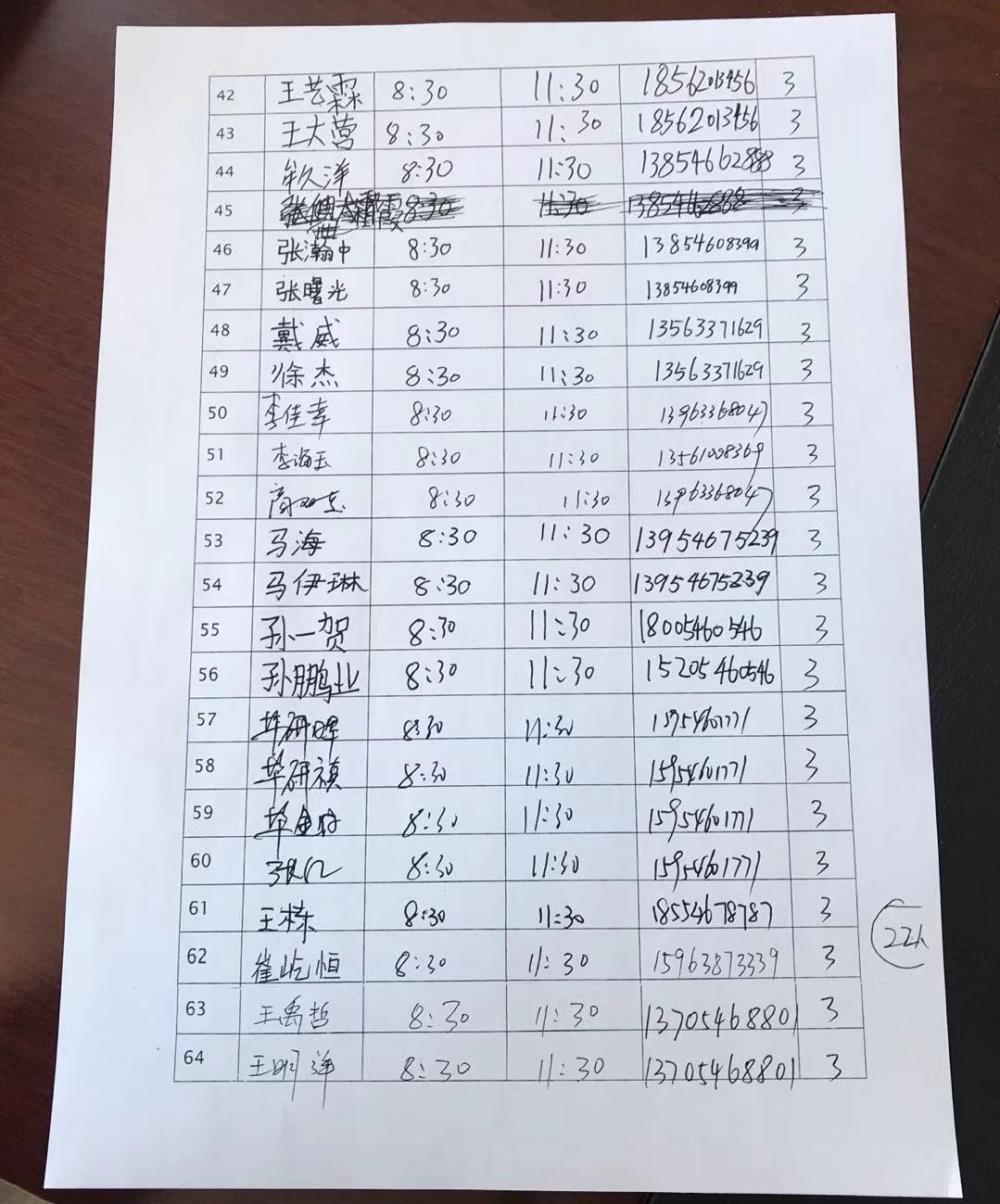 42 王艺霖 8:30 11:30 18562013456 3
43 王大营 8:30 11:30 18562013456 3
44 牟久泽 8:30 11:30 3
45 8:30 11:30 3
46 张瀚中 8:30 11:30 13854608399 3
47 张曙光 8:30 11:30 13854608399 3
48 戴威 8:30 11:30 13563371629 3
49 徐杰 8:30 11:30 13563371629 3
50 李佳幸 8:30 11:30 13963368047 3
51 李海玉 8:30 11:30 13561008369 3
52 8:30 11:30 13963368047 3
53 马海 8:30 11:30 13954675239 3
54 马伊琳 8:30 11:30 13954675239 3
55 孙一贺 8:30 11:30 18005460546 3
56 孙鹏业 8:30 11:30 15205460546 3
57 8:30 11:30 15954601771 3
58 8:30 11:30 15954601771 3
59 8:30 11:30 15954601771 3
60 8:30 11:30 15954601771 3
61 王栋 8:30 11:30 18554678787 3
62 崔屹恒 8:30 11:30 15963873339 3
22人
63 王禹哲 8:30 11:30 13705468801 3
64 王明洋 8:30 11:30 13705468801 3